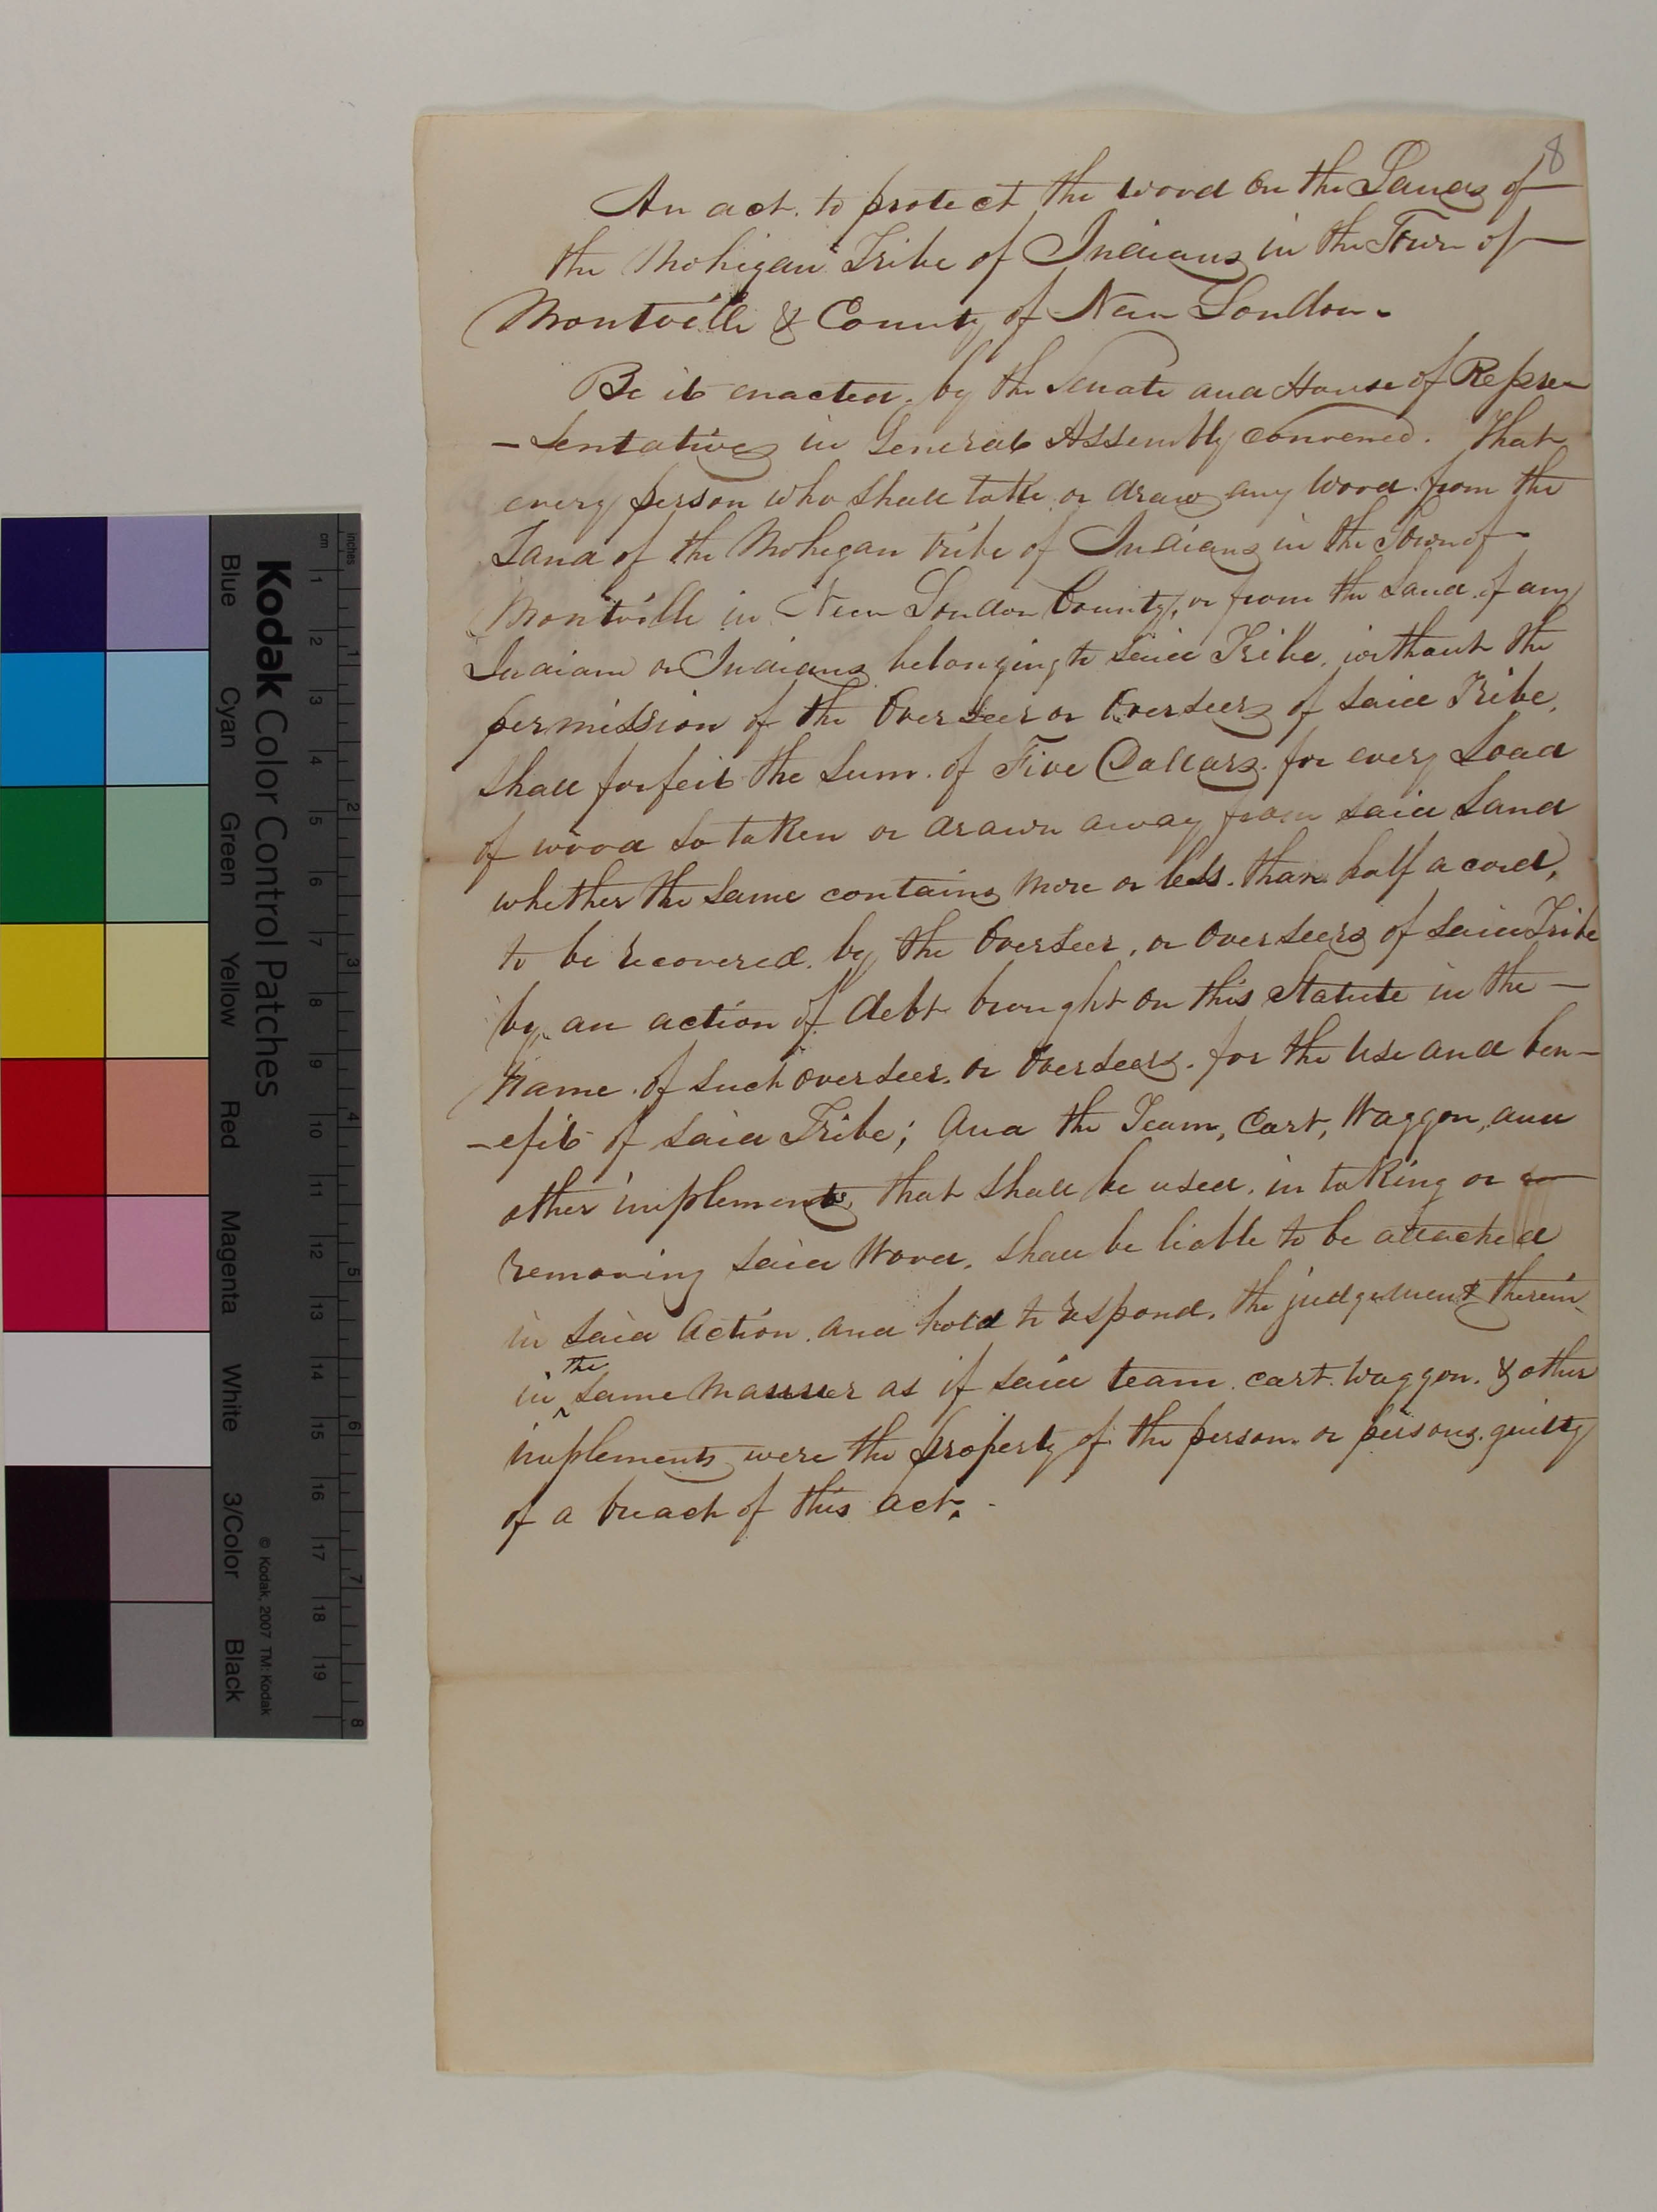 8
An act. to protect the wood on the Lands of
the Mohigan Tribe of Indians in the Town of
Montville & County of New London.
Be it enacted. by the Senate and House of Repre
-sentatives in General Assembly convened. That
every person who shall take or draw any wood from the
Land of the Mohegan tribe of Indians in the Town of
Montville in New London County, or from the Land of any
Indian or Indians belonging to said Tribe, without the
permission of the Overseer or Overseers of said Tribe,
shall forfeit the sum of Five Dollars for every Load
of wood so taken or drawn away from said Land
whether the same contains more or less than half a cord,
to be recovered by the Overseer, or Overseers of said Tribe
by an action of debt brought on this Statute in the
Name of such overseer or Overseers. for the use and ben-
-efit of said Tribe; and the Team, Cart, Waggon, and
other implements that shall be used in taking or
removing said Wood, shall be liable to be attached
in said Action and hold to respond. the judgement therein
the
in same manner as if said team. cart. waggon. & other
implements were the property of the person or persons guilty
of a breach of this act.
Kodak Color Control Patches
Blue Cyan Green Yellow Red Magenta White 3/Color Black
© Kodak, 2007 TM: Kodak
inches 1 2 3 4 5 6 7 8
cm 1 2 3 4 5 6 7 8 9 10 11 12 13 14 15 16 17 18 19